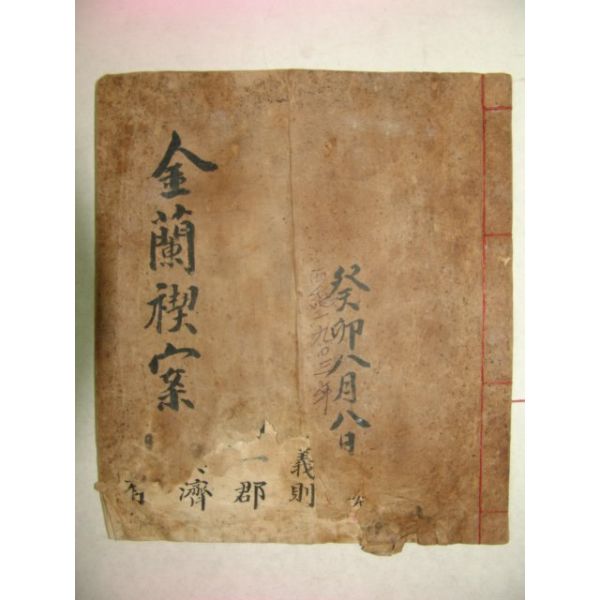 癸卯八月八日
西紀一九0三年
金蘭禊案
義則
一郡
濟